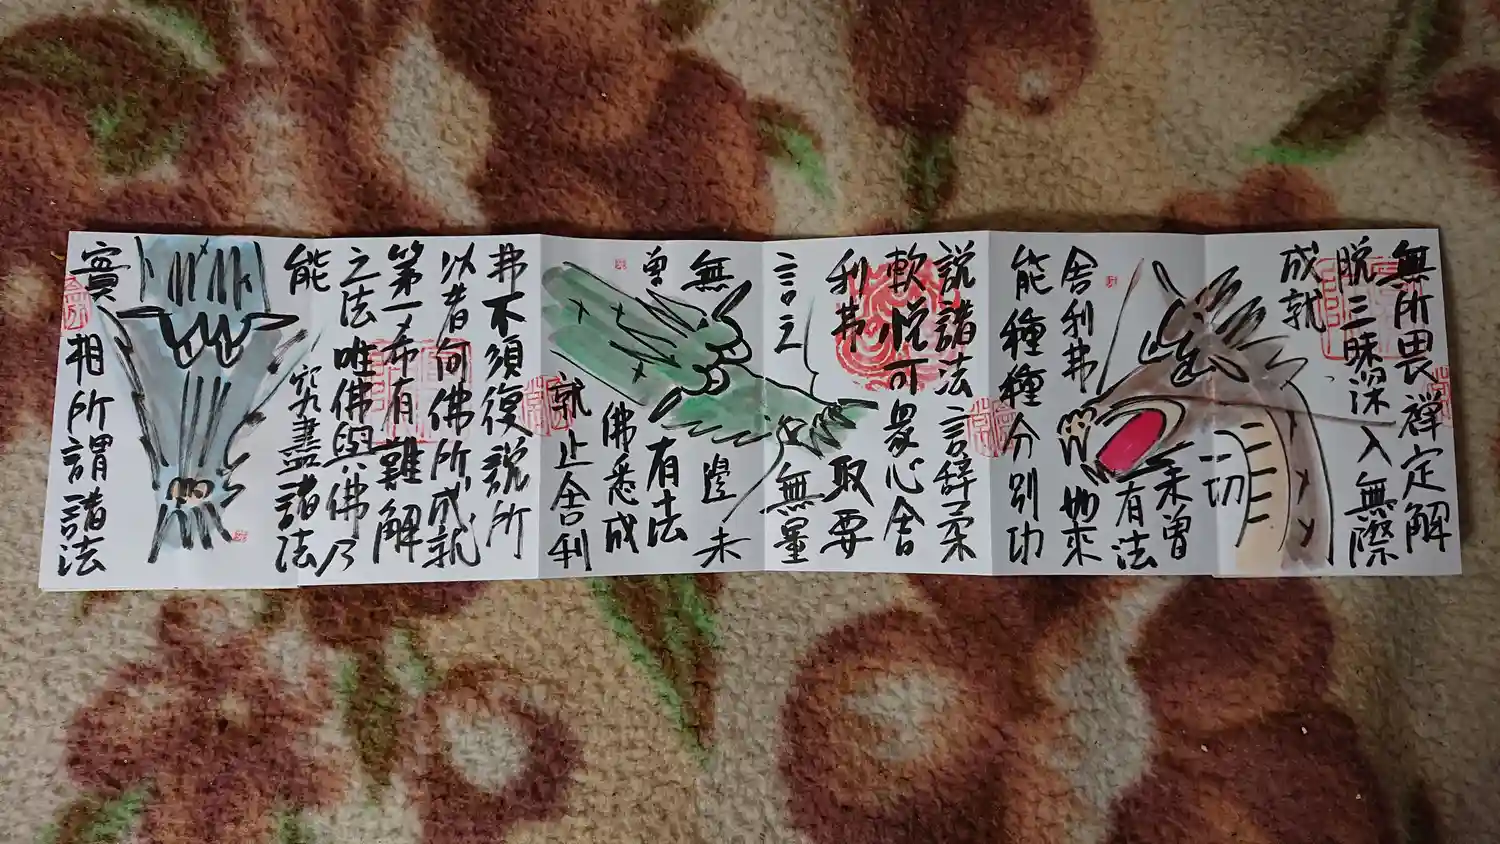 無所畏禅定解
脱三昧深入無際
成就
一切
未曽
有法
舎利弗如來
能種種分別功
説諸法言辞柔
軟悦可衆心舎
利弗取要
言之無量
無邊未
曽有法
佛悉成
就止舎利
弗不須復説所
以者何佛所成就
第一希有難解
之法唯佛與佛乃
能究盡諸法
實相所謂諸法